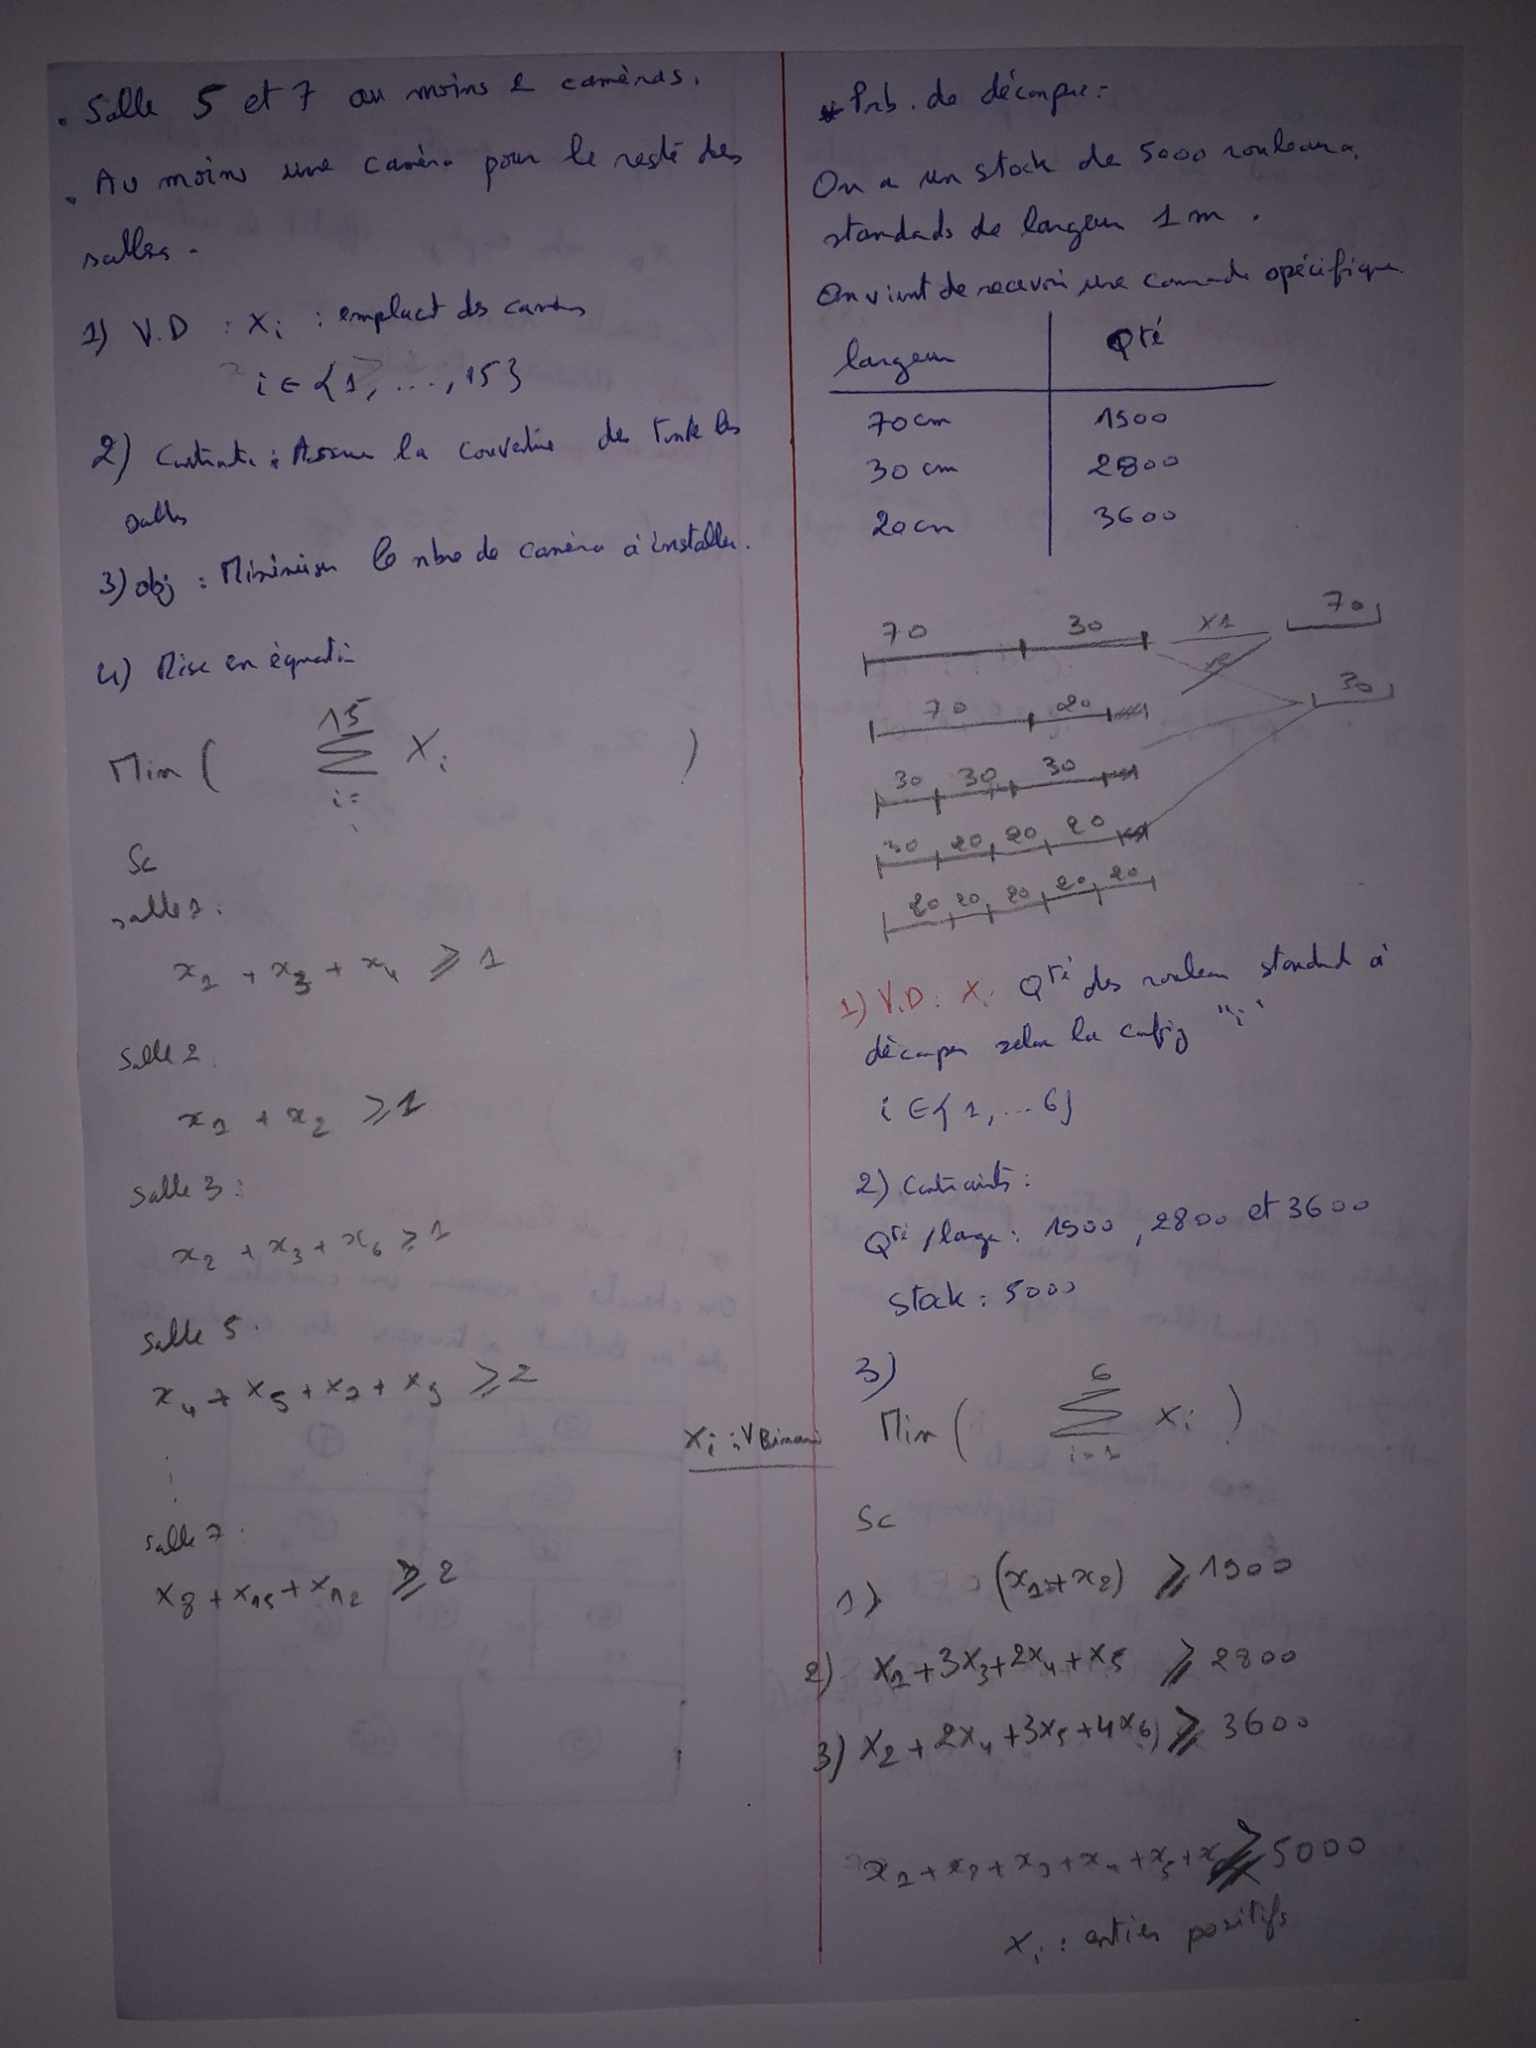 • Salle 5 et 7 au moins 2 caméras.
• Au moins une caméra pour le reste des
salles.
1) V.D : Xi : emplact des caméras
i ∈ {1, ..., 15}
2) Contrainte : Assurer la couverture des toute les
salles
3) obj : Minimiser le nbre de caméra à installer.
4) Mise en équation
Min ( 15 Σ i= Xi )
Sc
salle 1 :
x1 + x3 + x4 ⩾ 1
Salle 2
x1 + x2 ⩾ 1
Salle 3 :
x2 + x3 + x6 ⩾ 1
Salle 5.
x4 + x5 + x7 + x3 ⩾ 2
Salle 7.
x8 + x15 + x12 ⩾ 2
Xi : V Binaire
* Prb. de découpe :
On a un stock de 5000 rouleaux
standads de largeur 1 m.
On vient de recevoir une commande spécifique
largeur Qté
70 cm 1500
30 cm 2800
20 cm 3600
70 30 x1 70
70 20 x2 30
30 30 30
30 20 20 20
20 20 20 20 20
1) V.D : X Qté des rouleau standard à
découper selon la config "i"
i ∈ {1, ... 6}
2) Contraints :
Qté / large : 1500, 2800 et 3600
Stock : 5000
3)
Min ( 6 Σ i=1 Xi )
Sc
1) (x1 + x2) ⩾ 1500
2) X1 + 3X3 + 2X4 + X5 ⩾ 2800
3) X2 + 2X4 + 3X5 + 4X6) ⩾ 3600
x1 + x2 + x3 + x4 + x5 + x ⩾ 5000
Xi : entier positifs